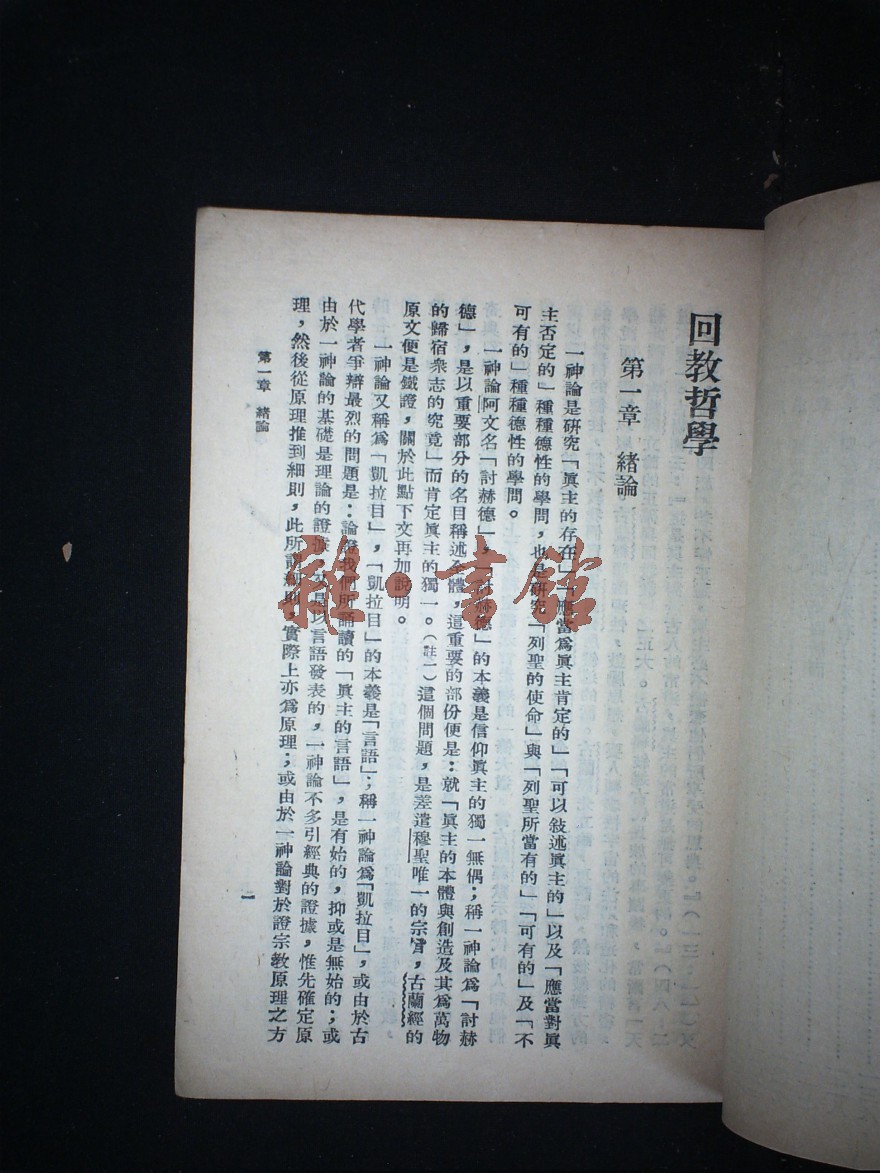 回教哲學
第一章 緒論
一神論是研究「眞主的存在」「應當爲眞主肯定的」「可以敍述眞主的」以及「應當對眞
主否定的」種種德性的學問，也是研究「列聖的使命」與「列聖所當有的」「可有的」及「不
可有的」種種德性的學問。
一神論阿文名「討赫德」，「討赫德」的本義是信仰眞主的獨一無偶；稱一神論爲「討赫
德」，是以重要部分的名目稱述全體，這重要的部份便是：就「眞主的本體與創造及其爲萬物
的歸宿衆志的究竟」而肯定眞主的獨一。（註一）這個問題，是差遣穆聖唯一的宗旨，古蘭經的
原文便是鐵證，關於此點下文再加說明。
一神論又稱爲「凱拉目」，「凱拉目」的本義是「言語」；稱一神論爲「凱拉目」，或由於古
代學者爭辯最烈的問題是：論證我們所誦讀的「眞主的言語」，是有始的，抑或是無始的；或
由於一神論的基礎是理論的證據 是以言語發表的，一神論不多引經典的證據，惟先確定原
理，然後從原理推到細則，此所謂細則，實際上亦爲原理；或由於一神論對於證宗教原理之方
第一章 緒論
一
雅·書館